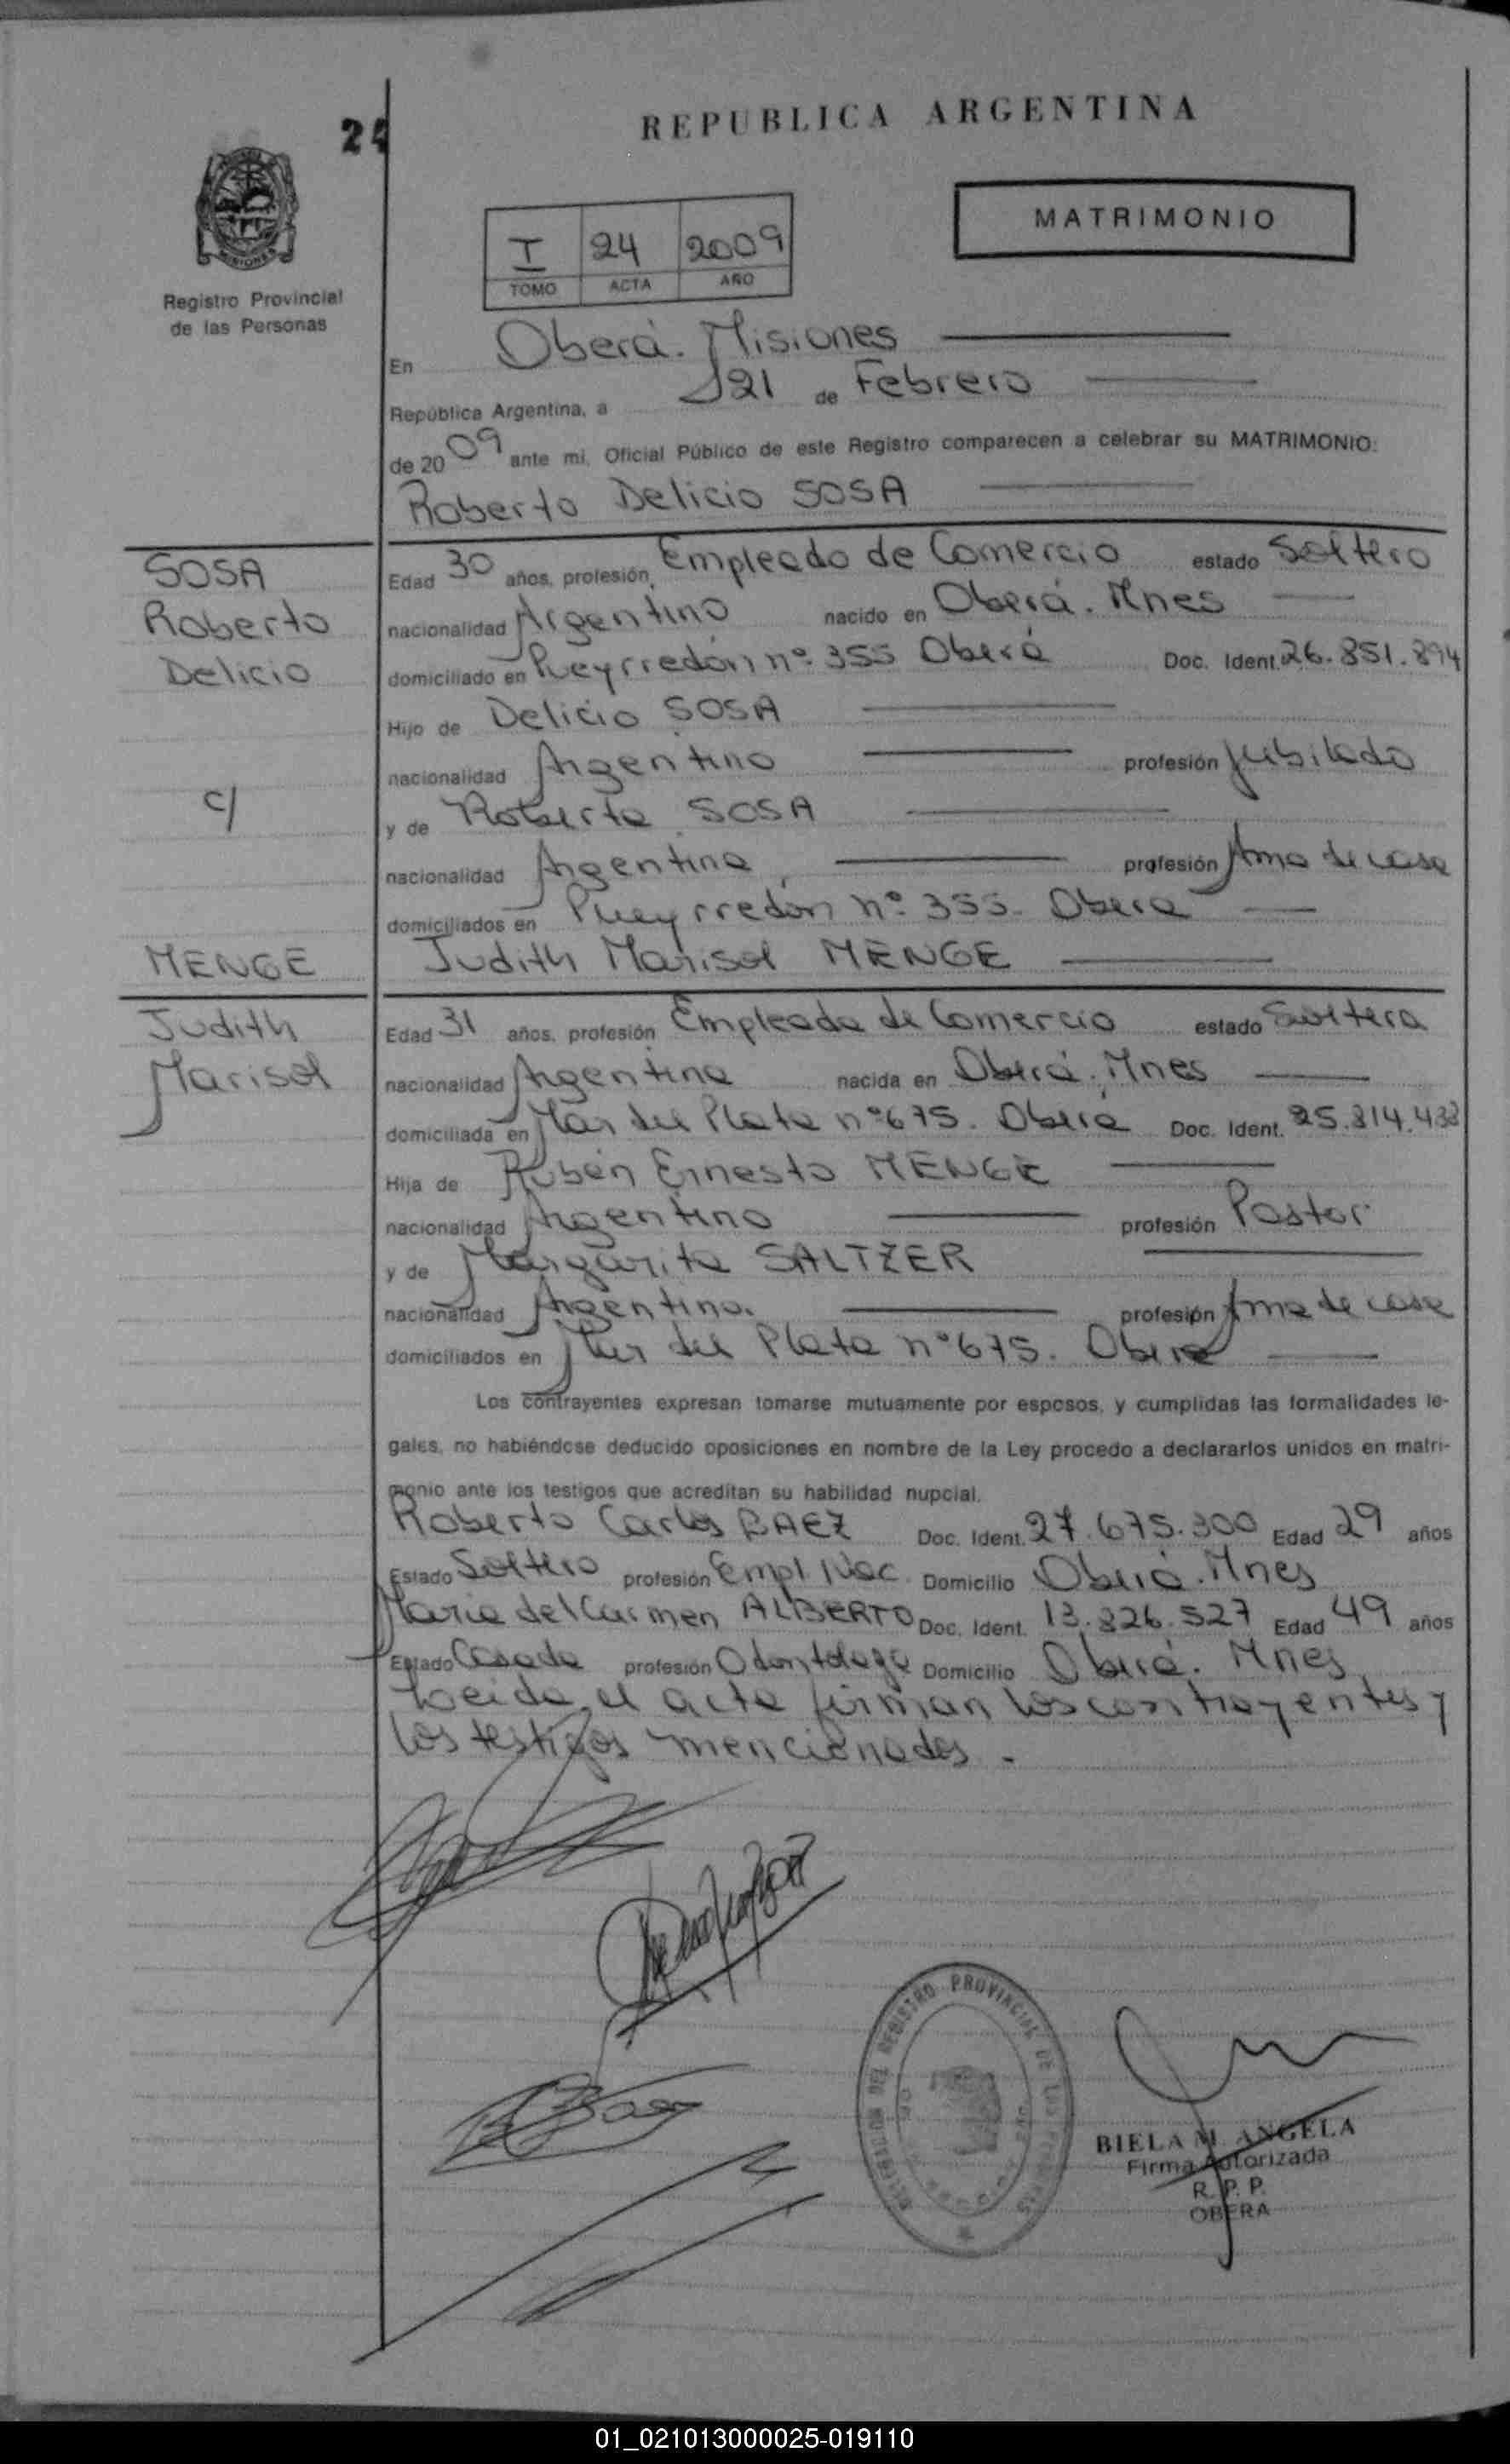 REPUBLICA ARGENTINA
24
MATRIMONIO
I 24 2009
TOMO ACTA AÑO
Registro Provincial
de las Personas
En Oberá. Misiones
República Argentina, a 21 de Febrero
de 2009 ante mi, Oficial Público de este Registro comparecen a celebrar su MATRIMONIO:
Roberto Delicio SOSA
SOSA
Roberto
Delicio
c/
MENGE
Judith
Marisol
Edad 30 años, profesión, Empleado de Comercio estado Soltero
nacionalidad Argentino nacido en Oberá. Mnes
domiciliado en Pueyrredón nº 355 Oberá Doc. Ident. 26.851.894
Hijo de Delicio SOSA
nacionalidad Argentino profesión Jubilado
y de Roberta SOSA
nacionalidad Argentina profesión Ama de casa
domiciliados en Pueyrredón nº 355. Oberá
Judith Marisol MENGE
Edad 31 años, profesión Empleada de Comercio estado Soltera
nacionalidad Argentina nacida en Oberá. Mnes
domiciliada en Mar del Plata nº 675. Oberá Doc. Ident. 25.814.438
Hija de Rubén Ernesto MENGE
nacionalidad Argentino profesión Pastor
y de Margarita SALTZER
nacionalidad Argentina. profesión Ama de casa
domiciliados en Mar del Plata nº 675. Oberá
Los contrayentes expresan tomarse mutuamente por esposos, y cumplidas las formalidades le-
gales, no habiéndose deducido oposiciones en nombre de la Ley procedo a declararlos unidos en matri-
monio ante los testigos que acreditan su habilidad nupcial.
Roberto Carlos BAEZ Doc. Ident. 27.675.300 Edad 29 años
Estado Soltero profesión Empl. Nac. Domicilio Oberá. Mnes
Maria del Carmen ALBERTO Doc. Ident. 13.826.527 Edad 49 años
Estado Casada profesión Odontologa Domicilio Oberá. Mnes
Leida el acta firman los contrayentes y
los testigos mencionados.
DELEGACION DEL REGISTRO PROVINCIAL DE LAS PERSONAS
BIELA M. ANGELA
Firma Autorizada
R. P. P.
OBERA
01_021013000025-019110